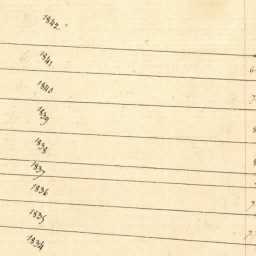 1842.
1841
1840
1839
1838
1837
1836
1835
1834